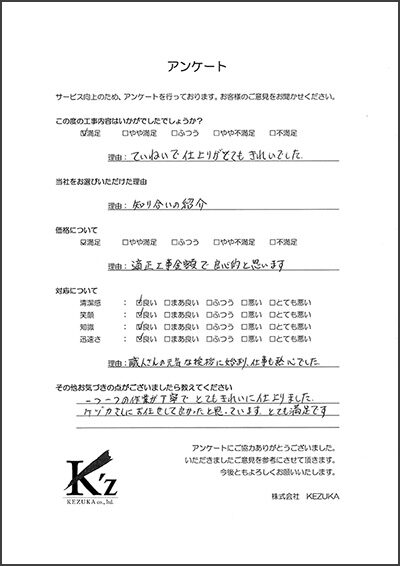 アンケート
サービス向上のため、アンケートを行っております。お客様のご意見をお聞かせください。
この度の工事内容はいかがでしたでしょうか?
☑満足 □やや満足 □ふつう □やや不満足 □不満足
理由: ていねいで仕上りがとてもきれいでした
当社をお選びいただけた理由
理由: 知り合いの紹介
価格について
☑満足 □やや満足 □ふつう □やや不満足 □不満足
理由: 適正工事金額で良心的と思います
対応について
清潔感 : ☑良い □まあ良い □ふつう □悪い □とても悪い
笑顔 : ☑良い □まあ良い □ふつう □悪い □とても悪い
知識 : ☑良い □まあ良い □ふつう □悪い □とても悪い
迅速さ : ☑良い □まあ良い □ふつう □悪い □とても悪い
理由: 職人さんの元気な挨拶に始り、仕事も熱心でした
その他お気づきの点がございましたら教えてください
一つ一つの作業が丁寧で とてもきれいに仕上りました
ケヅカさんにお任せして良かったと思っています とても満足です
アンケートにご協力ありがとうございました。
いただきましたご意見を参考にさせて頂きます。
今後ともよろしくお願いいたします。
K'z
KEZUKA co., ltd.
株式会社 KEZUKA